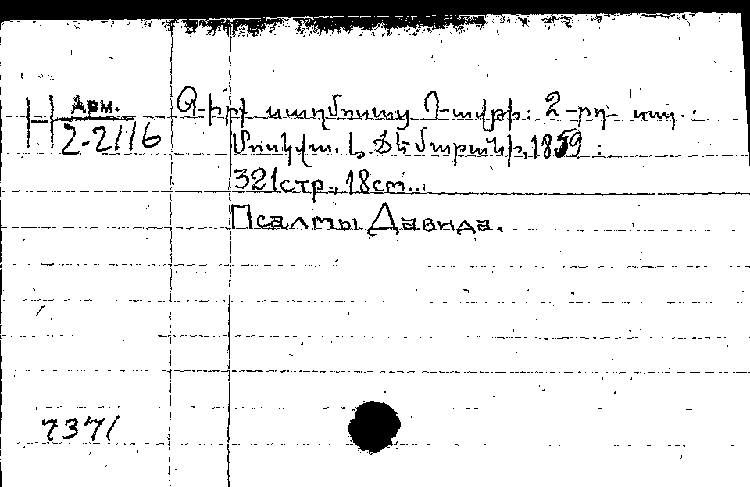 Н Арм.
2-2116
Գիրք սաղմոսաց Դավթի: 2-րդ տպ.:
Մոսկվա. Ի Ճեմարանի, 1859:
321стр., 18cm...
Псалмы Давида.
7371